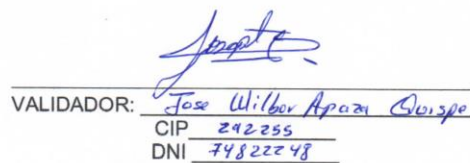 VALIDADOR: Jose Wilbor Apaza Quispe
CIP 242255
DNI 74822248